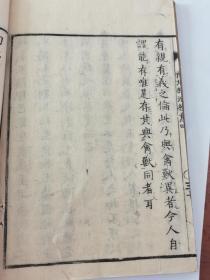 有親有義之倫此乃與禽獸異者今人自
謂能存唯是存其與禽獸同者耳